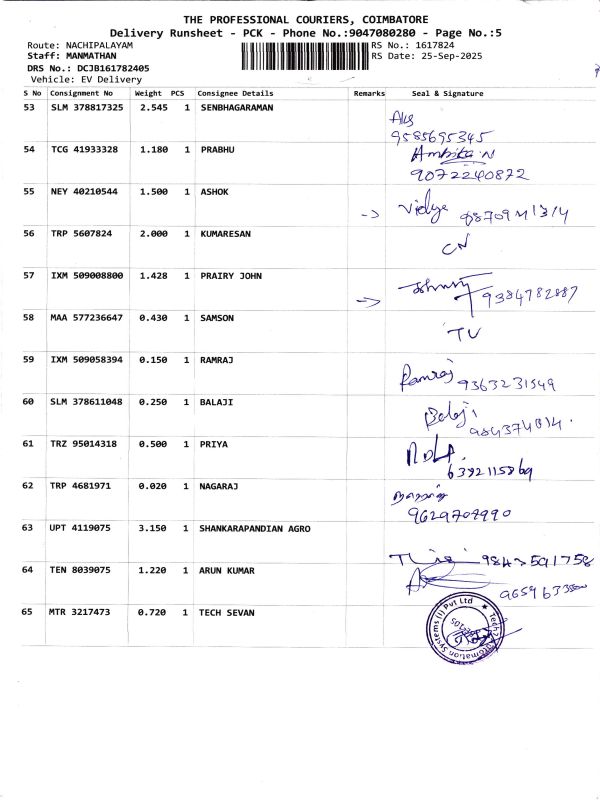 THE PROFESSIONAL COURIERS, COIMBATORE
Delivery Runsheet - PCK - Phone No.:9047080280 - Page No.:5
Route: NACHIPALAYAM RS No.: 1617824
Staff: MANMATHAN RS Date: 25-Sep-2025
DRS No.: DCJB161782405
Vehicle: EV Delivery
S No Consignment No Weight PCS Consignee Details Remarks Seal & Signature
53 SLM 378817325 2.545 1 SENBHAGARAMAN
9585695345
54 TCG 41933328 1.180 1 PRABHU Ambika.N
9072240872
55 NEY 40210544 1.500 1 ASHOK
-> Vidya
56 TRP 5607824 2.000 1 KUMARESAN
CN
57 IXM 509008800 1.428 1 PRAIRY JOHN
-> Johnny 9384782887
58 MAA 577236647 0.430 1 SAMSON
TV
59 IXM 509058394 0.150 1 RAMRAJ
Ramraj 9363231549
60 SLM 378611048 0.250 1 BALAJI
Balaji
61 TRZ 95014318 0.500 1 PRIYA
6392115869
62 TRP 4681971 0.020 1 NAGARAJ
நாகராஜ்
9629704990
63 UPT 4119075 3.150 1 SHANKARAPANDIAN AGRO
9847591758
64 TEN 8039075 1.220 1 ARUN KUMAR
9659633500
65 MTR 3217473 0.720 1 TECH SEVAN
Tech7 Automation Systems (I) Pvt Ltd